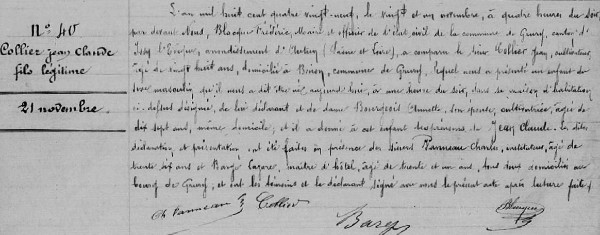 N° 40
Collier Jean Claude
fils légitime
21 novembre
L'an mil huit cent quatre vingt-neuf, le vingt et un novembre, à quatre heures du soir,
par devant Nous, Blacque Frédéric, Maire et officier de l'état civil de la commune de Cussy, canton d'
Issy l'Evêque, arrondissement d'Autun, (Saône et Loire), a comparu le sieur Collier Jean, cultivateur,
âgé de vingt huit ans, domicilié à commune de Cussy, lequel nous a présenté un enfant du
sexe masculin, qu'il nous a dit être né, aujourd'hui, à une heure du soir, dans sa maison d'habitation
ci-dessus désignée, de lui déclarant et de dame Bourgeois Annette, son épouse, cultivatrice, âgée de
dix sept ans, même domicile, et il a donné à cet enfant les prénoms de Jean Claude. La dite
déclaration, et présentation, ont été faites en présence des sieurs Panneau Charles, instituteur, âgé de
trente six ans et Barge Lazare, maître d'hôtel, âgé de trente et un ans, tous deux domiciliés au
bourg de Cussy, et ont les témoins et le déclarant signé avec nous le présent acte après lecture faite.
Ch Panneau Collier
Barge